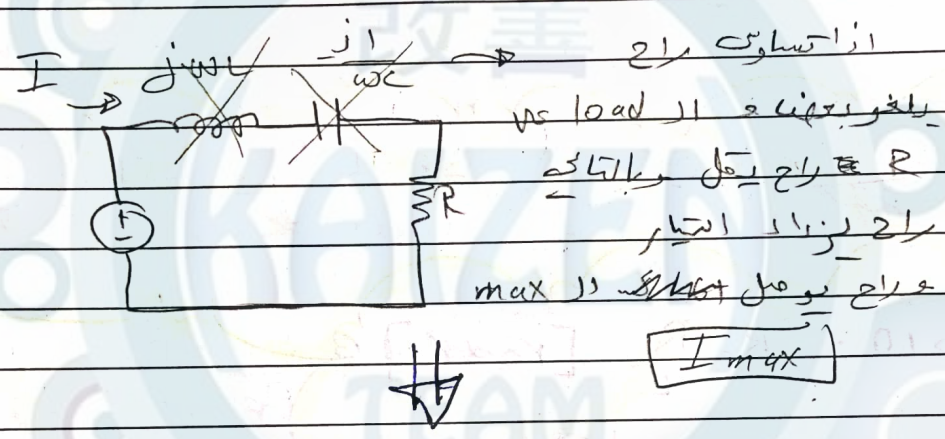 I
jωL
j1
ωC
اذا تساوى راح
يلغو بعض و ال load vs
R راح يقل وبالتالي
راح يزداد التيار
و راح يوصل لل max
I max
R
改善
KAIZEN
TEAM